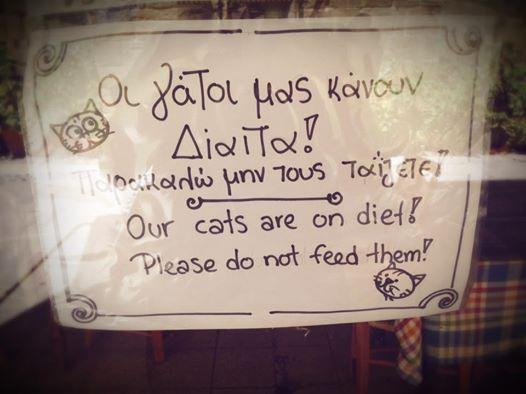 Οι γάτοι μας κάνουν
Δίαιτα!
Παρακαλώ μην τους ταΐζετε!
Our cats are on diet!
Please do not feed them!